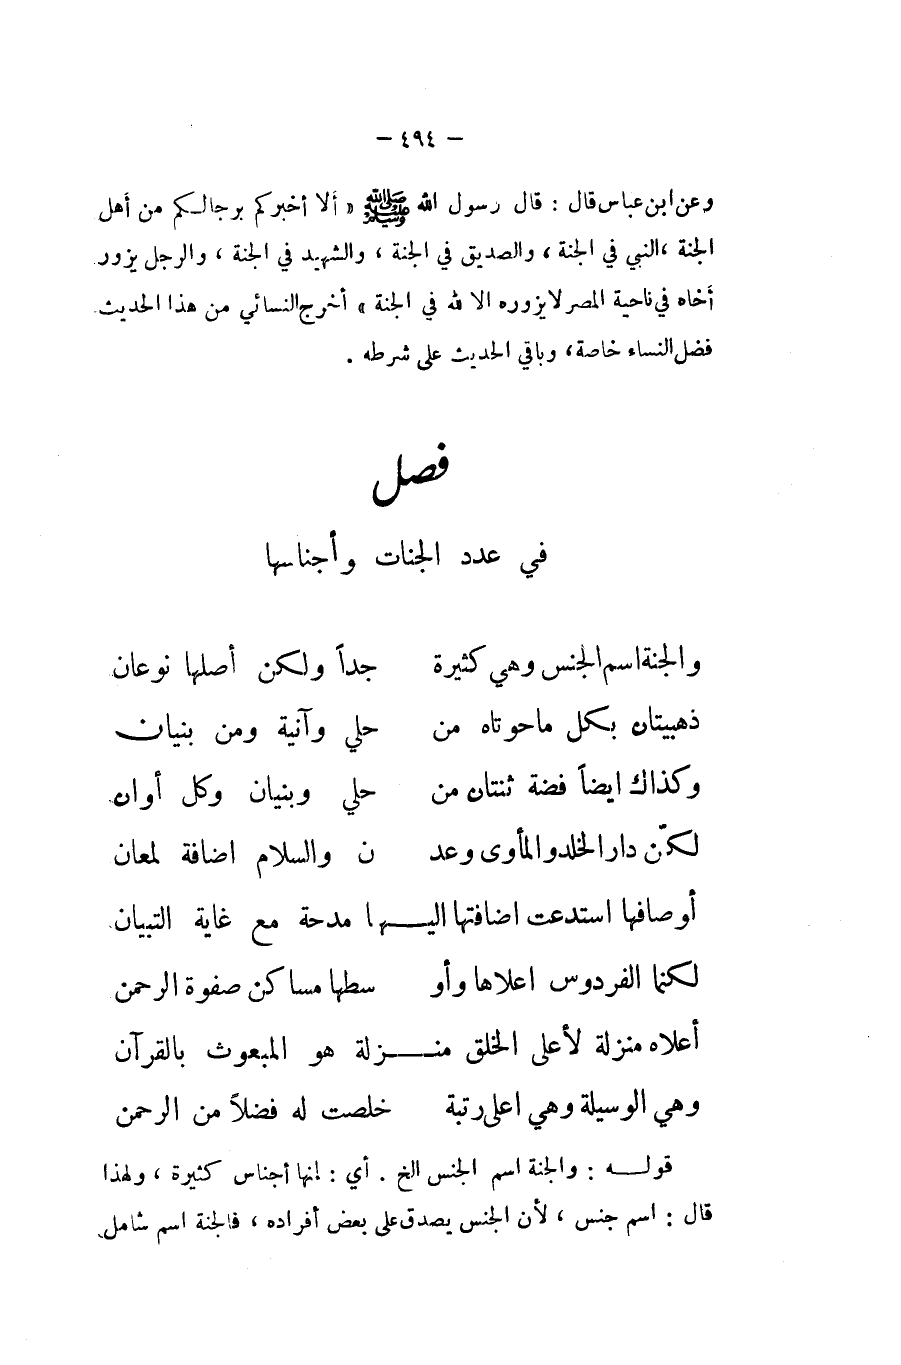 — ٤٩٤ —
وعن ابن عباس قال : قال رسول الله ﷺ « ألا أخبركم برجالكم من أهل
الجنة ، النبي في الجنة ، والصديق في الجنة ، والشهيد في الجنة ، والرجل يزور
أخاه في ناحية المصر لا يزوره الا لله في الجنة » أخرج النسائي من هذا الحديث
فضل النساء خاصة ، وباقي الحديث على شرطه .
فصل
في عدد الجنات وأجناسها
والجنة اسم الجنس وهي كثيرة جداً ولكن أصلها نوعان
ذهبيتان بكل ما حوتاه من حلي وآنية ومن بنيان
وكذاك ايضاً فضة ثنتان من حلي وبنيان وكل أوان
لكنّ دار الخلد والمأوى وعد ن والسلام اضافة لمعان
أوصافها استدعت اضافتها اليـــها مدحة مع غاية التبيان
لكنما الفردوس اعلاها وأو سطها مساكن صفوة الرحمن
أعلاه منزلة لأعلى الخلق منـــزلة هو المبعوث بالقرآن
وهي الوسيلة وهي اعلى رتبة خلصت له فضلاً من الرحمن
قولـــه : والجنة اسم الجنس الخ . أي : إنها أجناس كثيرة ، ولهذا
قال : اسم جنس ، لأن الجنس يصدق على بعض أفراده ، فالجنة اسم شامل